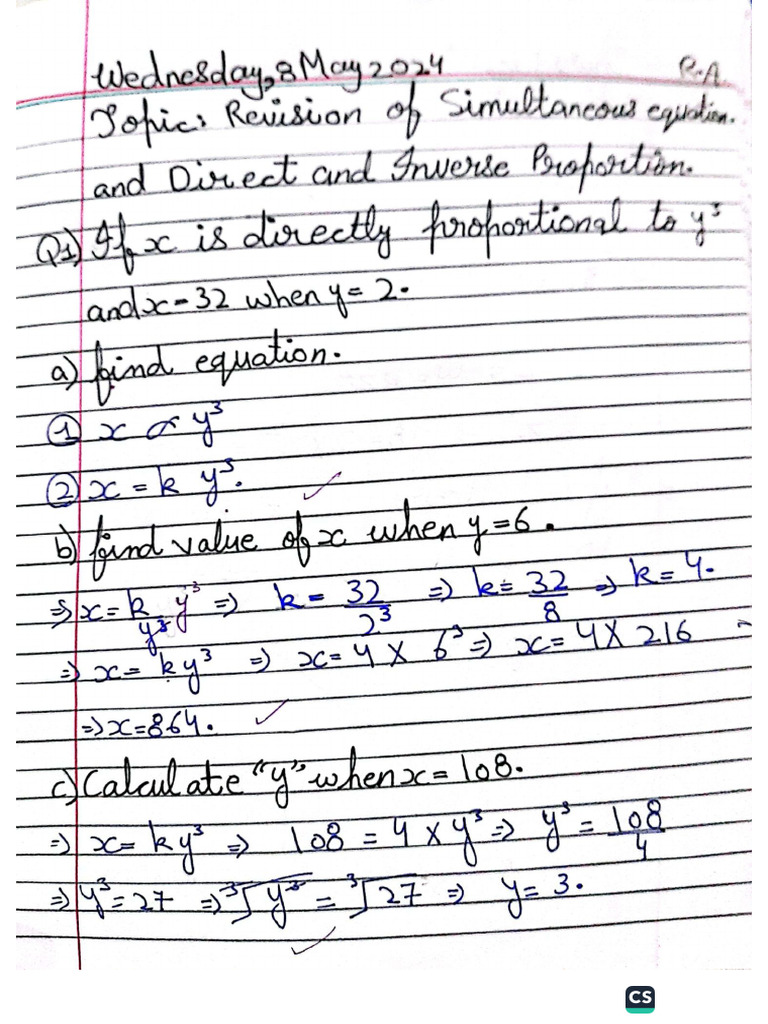 Wednesday, 8 May 2024 R.A.
Topic: Revision of Simultaneous equation.
and Direct and Inverse Proportion.
Q1) If x is directly proportional to y³
and x = 32 when y = 2.
a) find equation.
① x ∝ y³
② x = k y³.
b) find value of x when y = 6.
⇒ x = k/y³ y³ ⇒ k = 32/2³ ⇒ k = 32/8 ⇒ k = 4.
⇒ x = ky³ ⇒ x = 4 × 6³ ⇒ x = 4 × 216 =
⇒ x = 864.
c) Calculate "y" when x = 108.
⇒ x = ky³ ⇒ 108 = 4 × y³ ⇒ y³ = 108/4
⇒ y³ = 27 ⇒ ³√y³ = ³√27 ⇒ y = 3.
CS